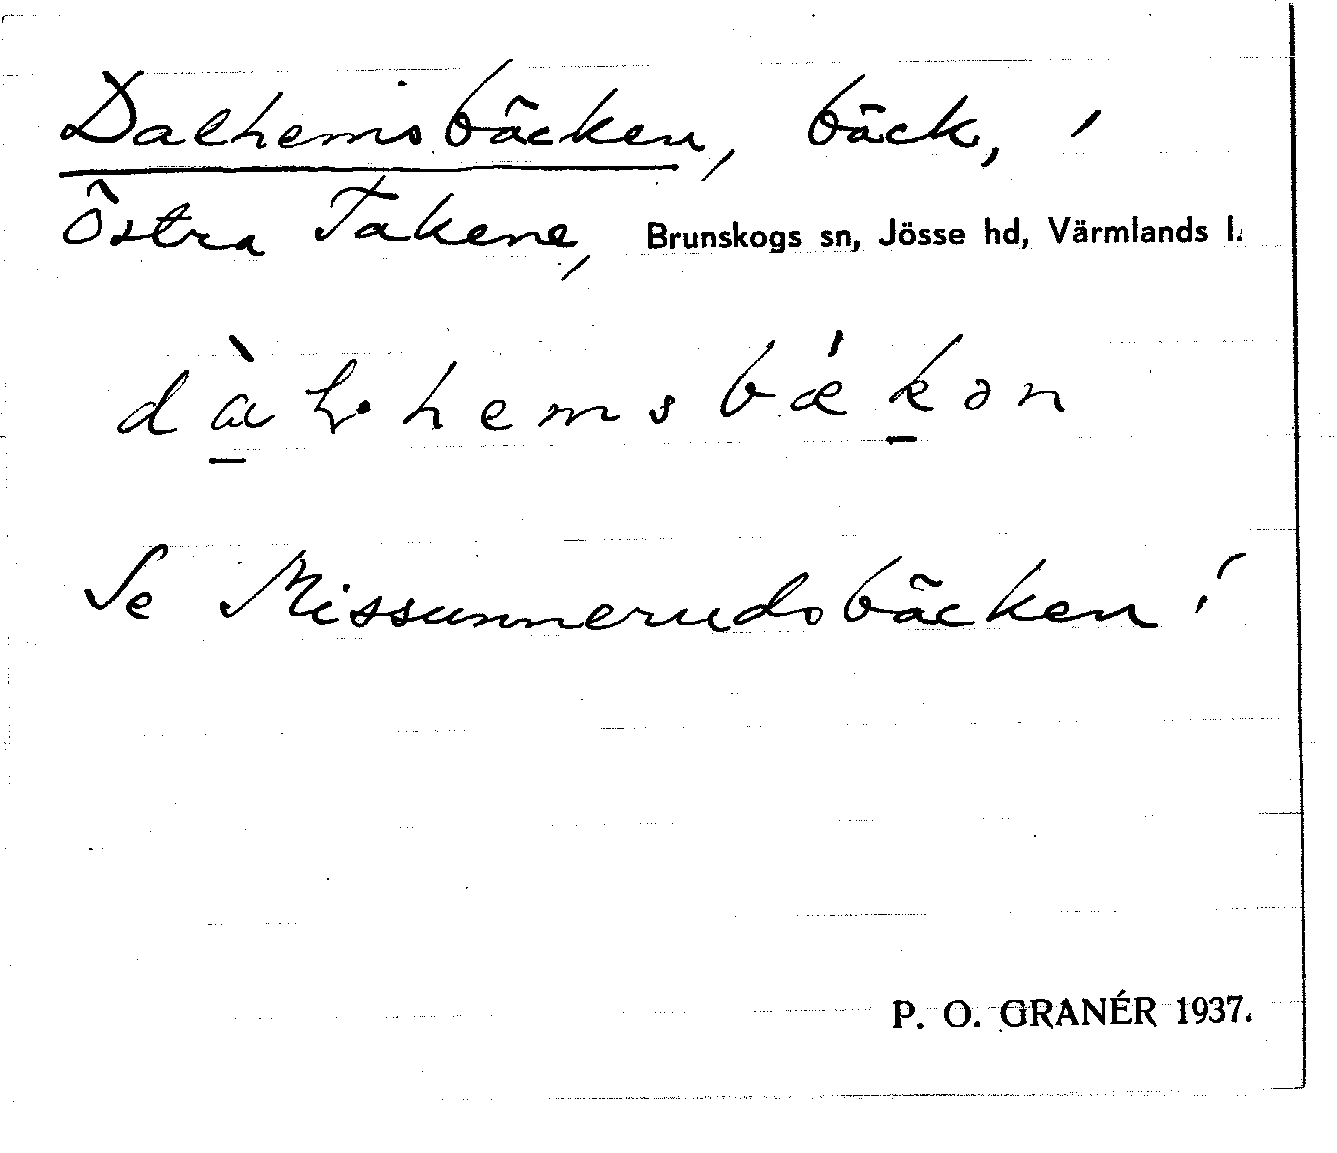 Dalhemsbäcken, bäck, i
Östra Takene, Brunskogs sn, Jösse hd, Värmlands l.
dàɽhemsbǽkən
Se Missunnerudsbäcken!
P. O. GRANÉR 1937.